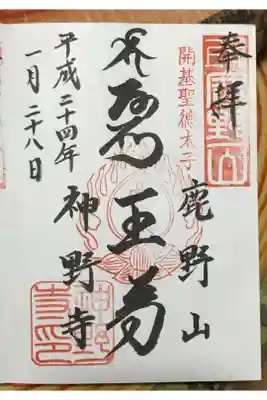 奉拝
鹿野山
開基聖徳太子
王
神野寺
平成二十四年
一月二十八日
神野寺印